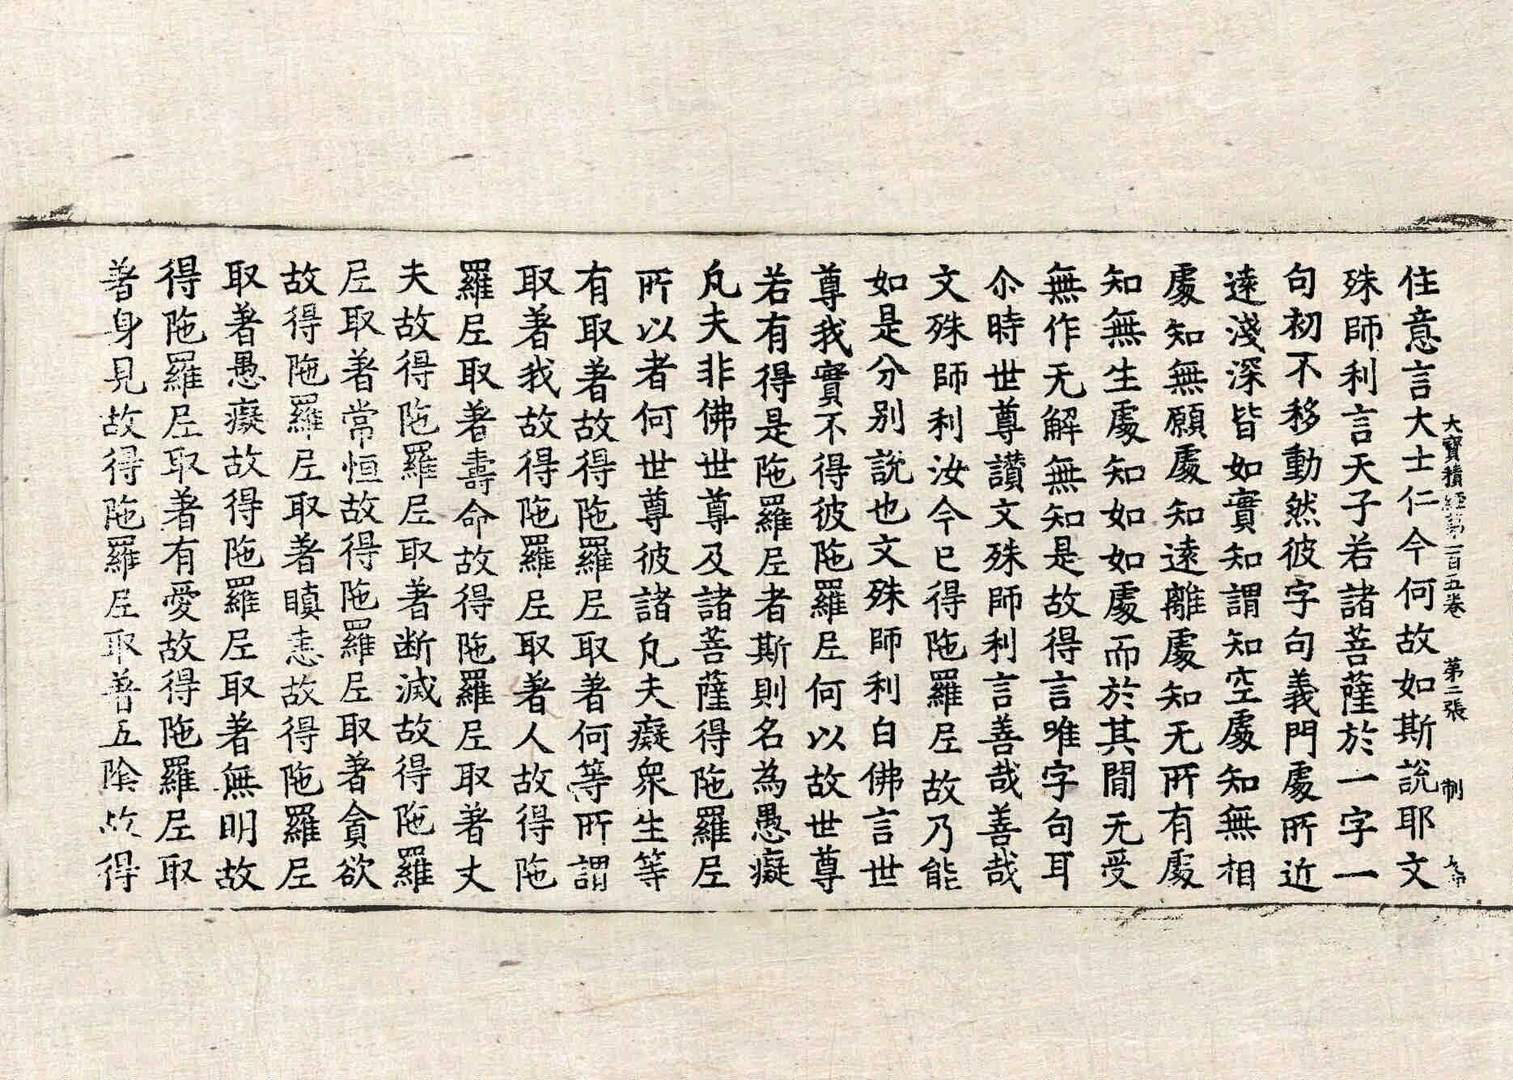 大寶積經第一百五卷 第二張 制
住意言大士仁今何故如斯說耶文
殊師利言天子若諸菩薩於一字一
句初不移動然彼字句義門處所近
遠淺深皆如實知謂知空處知無相
處知無願處知遠離處知无所有處
知無生處知如如處而於其間无受
無作无解無知是故得言唯字句耳
尒時世尊讃文殊師利言善哉善哉
文殊師利汝今已得陁羅𡰱故乃能
如是分別說也文殊師利白佛言世
尊我實不得彼陁羅𡰱何以故世尊
若有得是陁羅𡰱者斯則名為愚癡
凢夫非佛世尊及諸菩薩得陁羅𡰱
所以者何世尊彼諸凢夫癡衆生等
有取著故得陁羅𡰱取著何等所謂
取著我故得陁羅𡰱取著人故得陁
羅𡰱取著壽命故得陁羅𡰱取著丈
夫故得陁羅𡰱取著断滅故得陁羅
𡰱取著常恒故得陁羅𡰱取著貪欲
故得陁羅𡰱取著瞋恚故得陁羅𡰱
取著愚癡故得陁羅𡰱取著無明故
得陁羅𡰱取著有愛故得陁羅𡰱取
著身見故得陁羅𡰱取著五陰故得